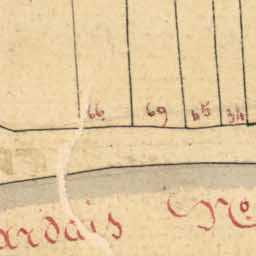 66 69 65 34
ardais No